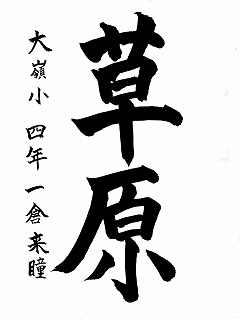 草原
大嶺小 四年 一倉来瞳